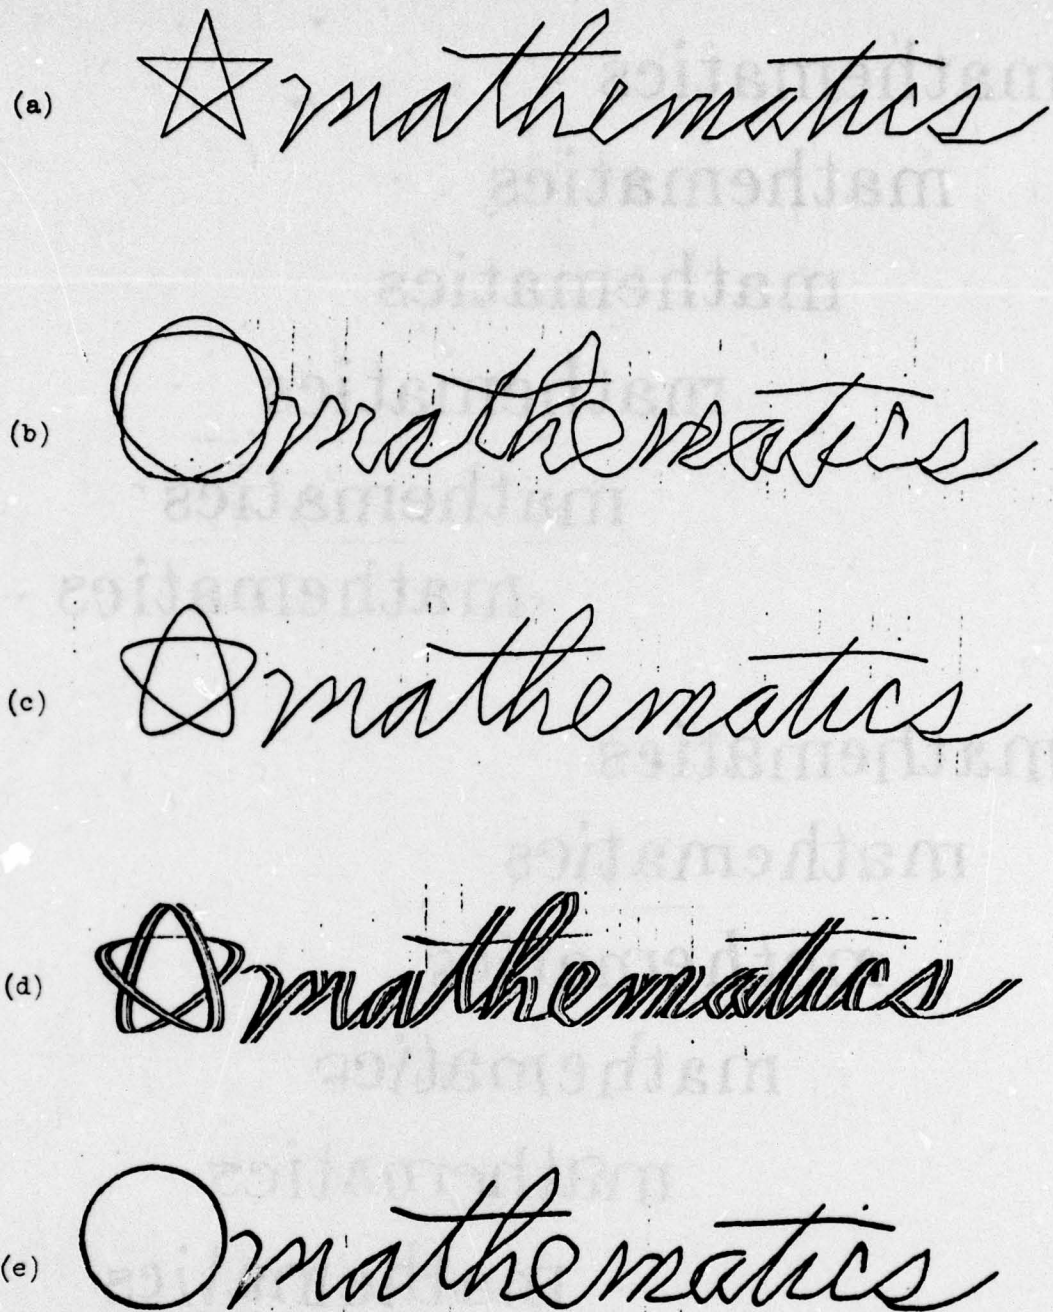 (a) mathematics
(b) mathematics
(c) mathematics
(d) mathematics
(e) mathematics